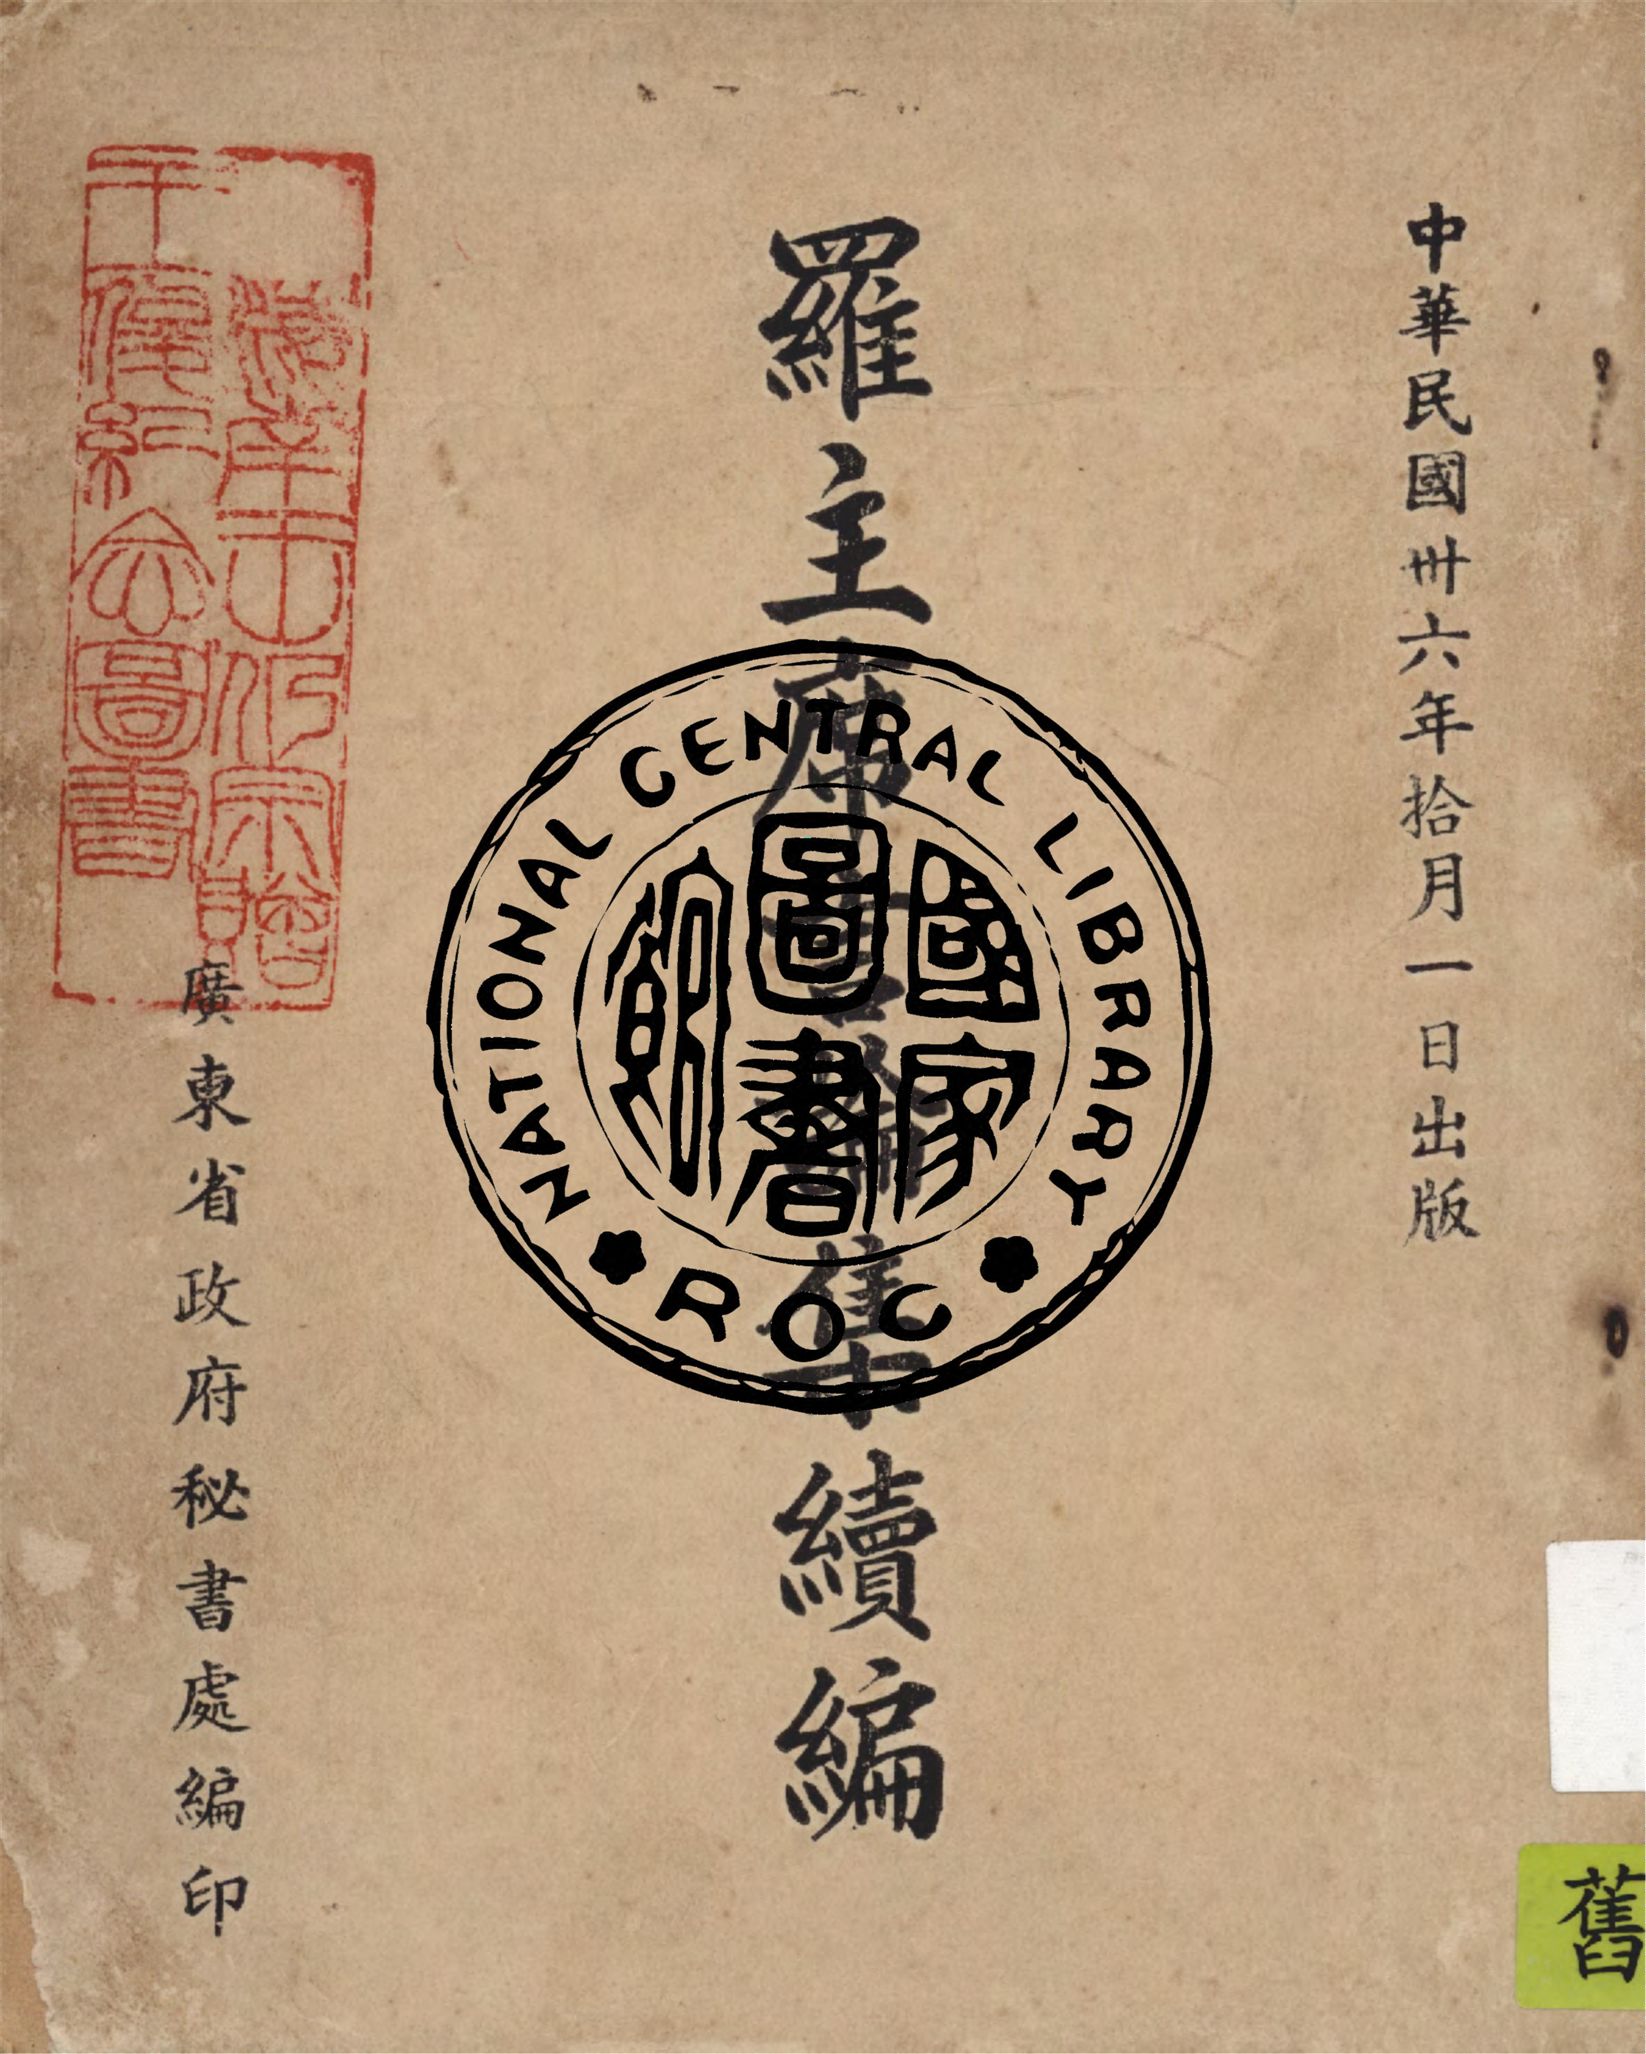 中華民國卅六年拾月一日出版
羅主席言論集續編
廣東省政府秘書處編印
NATIONAL CENTRAL LIBRARY
國家圖書館
ROC
圖書
舊